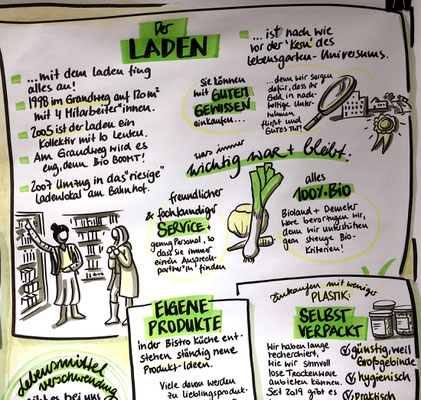 Der
LADEN
...mit dem Laden fing
alles an!
1998 im Grandweg auf 120m²
mit 4 Mitarbeiter*innen.
2005 ist der Laden ein
Kollektiv mit 10 Leuten.
Am Grandweg wird es
eng, denn Bio BOOMT!
2007 Umzug in das "riesige"
Ladenlokal am Bahnhof.
...ist nach wie
vor der "Kern" des
Lebensgarten-Universums.
Sie können
mit GUTEM
GEWISSEN
einkaufen...
...denn wir sorgen
dafür, dass ihr
Geld in nach-
haltige Unter-
nehmen
fließt und
GUTES TUT!
was immer
wichtig war + bleibt:
freundlicher
& fachkundiger
SERVICE +
genug Personal, so
dass sie immer
einen Ansprech-
partner*in finden
alles
100% BIO
Bioland + Demeter
Ware bevorzugen wir,
denn wir unterstützen
gern strenge Bio-
Kriterien!
EIGENE
PRODUKTE
in der Bistro Küche ent-
stehen ständig neue
Produkt-Ideen.
Viele davon werden
zu Lieblingsprodukt-
Einkaufen mit weniger
PLASTIK:
SELBST
VERPACKT
Wir haben lange
recherchiert,
wie wir sinnvoll
lose Trockenware
anbieten können.
Seit 2019 gibt es
günstig, weil
Großgebinde
hygienisch
praktisch
Lebensmittel
verschwendung
gibt es bei uns